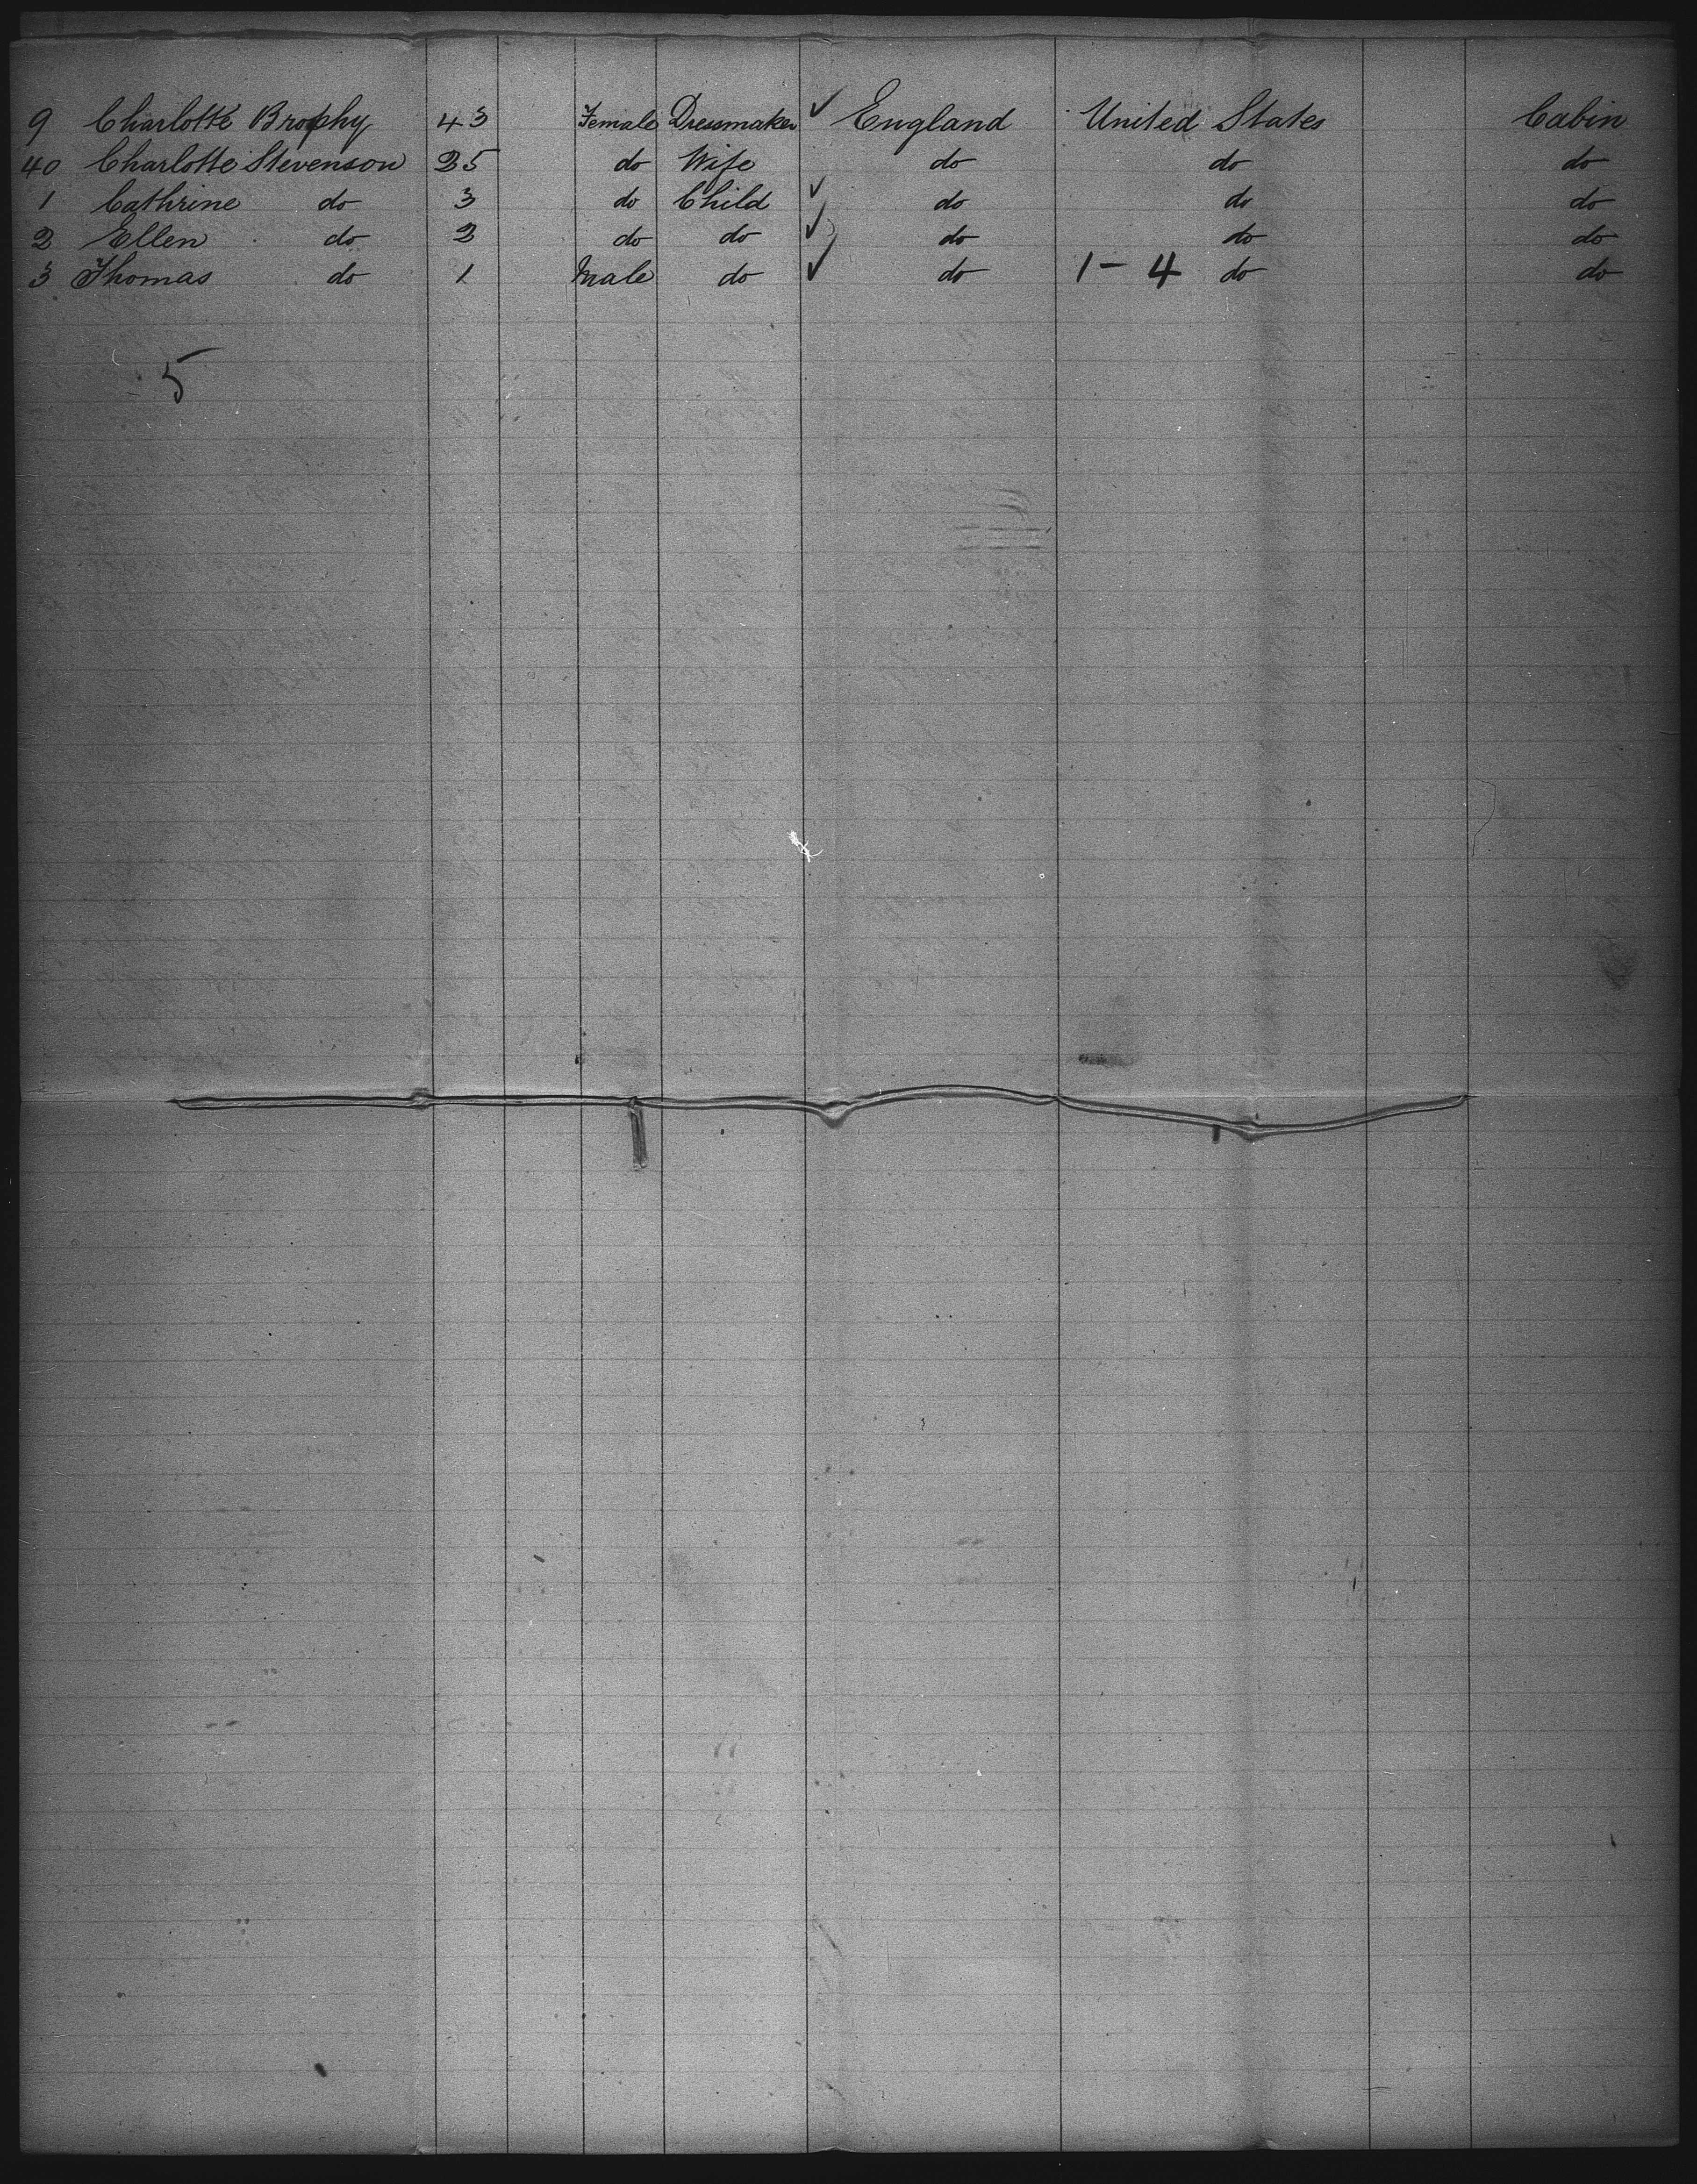 9 Charlotte Brophy 43 Female Dressmaker ✓ England United States Cabin
40 Charlotte Stevenson 25 do Wife do do do
1 Cathrine do 3 do Child ✓ do do do
2 Ellen do 2 do do ✓ do do do
3 Thomas do 1 Male do ✓ do 1-4 do do
5